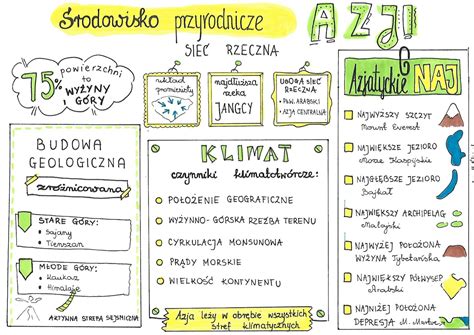 Środowisko przyrodnicze AZJI
75%
powierzchni
to
WYŻYNY
I GÓRY
SIEĆ RZECZNA
układ
promienisty
najdłuższa
rzeka
JANGCY
UBOGA SIEĆ
RZECZNA:
PŁW. ARABSKI
AZJA CENTRALNA
BUDOWA
GEOLOGICZNA
zróżnicowana
STARE GÓRY:
Sajany
Tienszan
MŁODE GÓRY:
Kaukaz
Himalaje
AKTYWNA STREFA SEJSMICZNA
KLIMAT
czynniki klimatotwórcze:
POŁOŻENIE GEOGRAFICZNE
WYŻYNNO-GÓRSKA RZEŹBA TERENU
CYRKULACJA MONSUNOWA
PRĄDY MORSKIE
WIELKOŚĆ KONTYNENTU
Azja leży w obrębie wszystkich
stref klimatycznych
Azjatyckie NAJ
NAJWYŻSZY SZCZYT
Mount Everest
NAJWIĘKSZE JEZIORO
Morze Kaspijskie
NAJGŁĘBSZE JEZIORO
Bajkał
NAJWIĘKSZY ARCHIPELAG
Malajski
NAJWYŻEJ POŁOŻONA
WYŻYNA Tybetańska
NAJWIĘKSZY PÓŁWYSEP
Arabski
NAJNIŻEJ POŁOŻONA
DEPRESJA M. Martwe